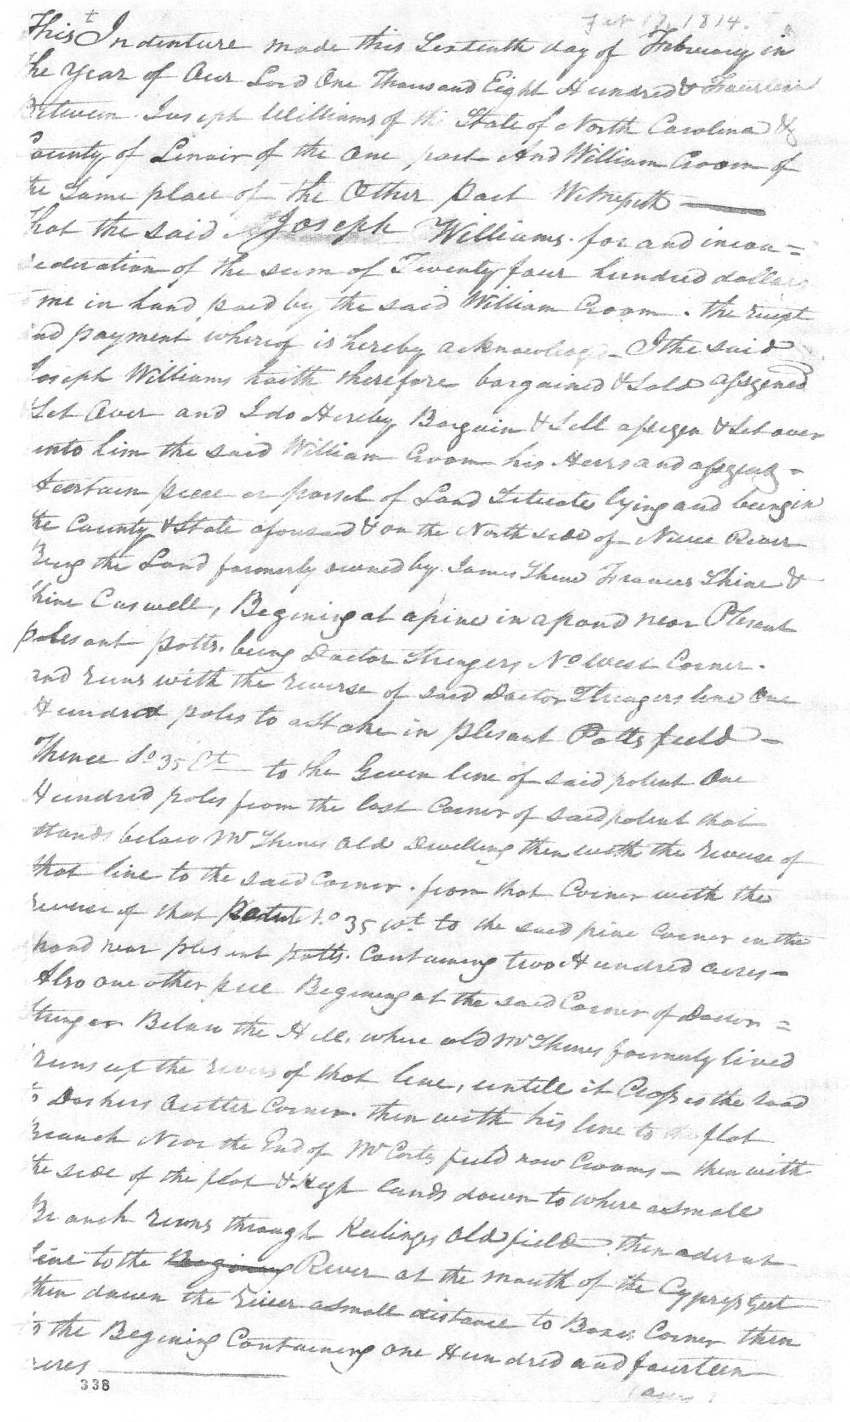 Feb 17, 1814.
This Indenture made this Sixtenth day of February in
the Year of Our Lord One Thousand Eight Hundred & Fourteen
Between Joseph Williams of the State of North Carolina &
County of Lenoir of the one part And William Croom of
the same place of the Other part Witnesseth —
that the said Joseph Williams for and in con=
sederation of the sum of Twenty four hundred dollars
to me in hand paid by the said William Croom . the recept
and payment wherof is hereby acknowleag I the said
Joseph Williams haith therefore bargained & Sold assgened
Set Over and I do Hereby Bargain & Sell assign & Set over
unto him the said William Croom his Heirs and assgens
A certain piece or parsel of Land Situate lying and being in
the County & State aforsaid & on the North side of Nuse River
Being the Land formerly owned by James Shine Frances Shine &
Shine Caswell, Begining at a pine in a pond near Plesant
plesant potts. being Doctor Stringers No West Corner .
and runs with the reverse of said Doctor Stringers line One
Hundred poles to a Stake in plesant Potts field —
Thence So 35 Et to the Given line of said patent One
Hundred poles from the last Corner of said patent that
stands below Mr Shines Old Dwelling then with the reverse of
that line to the said Corner . from that Corner with the
reverse of that patent No 35 Wt to the said pine Corner in the
pond near plesant potts. Containing two Hundred acres —
Also one other peice Begining at the said Corner of Doctor =
Stringer Below the Hill, where old Mr Shines formerly lived
runs up the revers of that line, untill it Cross es the road
to Dashers Outter Corner . then with his line to the flat
Branch Near the End of Mr Cortes field now Crooms — then with
the side of the flat & High lands down to where a small
Branch runs through Keelings Old field then a dir at
line to the Begining River at the mouth of the Cypress Gut
then down the River a small distance to Boxes Corner then
to the Begining Containing One Hundred and fourteen
acres
338